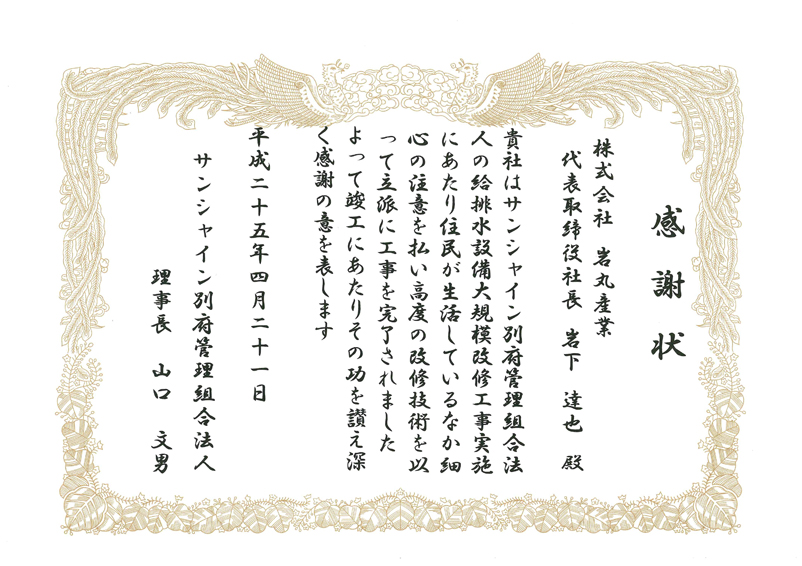 感謝状
株式会社 岩丸産業
代表取締役社長 岩下 達也 殿
貴社はサンシャイン別府管理組合法
人の給排水設備大規模改修工事実施
にあたり住民が生活しているなか細
心の注意を払い高度の改修技術を以
って立派に工事を完了されました
よって竣工にあたりその功を讃え深
く感謝の意を表します
平成二十五年四月二十一日
サンシャイン別府管理組合法人
理事長 山口 文男